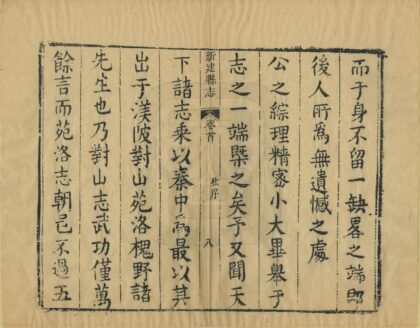 而于身不留一缺畧之端即
後人所爲無遺憾之處
公之綜理精密小大畢舉于
志之一端槩之矣予又聞天
新建縣志
卷首
杜序
八
下諸志乘以秦中爲最以其
出于渼陂對山苑洛槐野諸
先生也乃對山志武功僅萬
餘言而苑洛志朝邑不過五